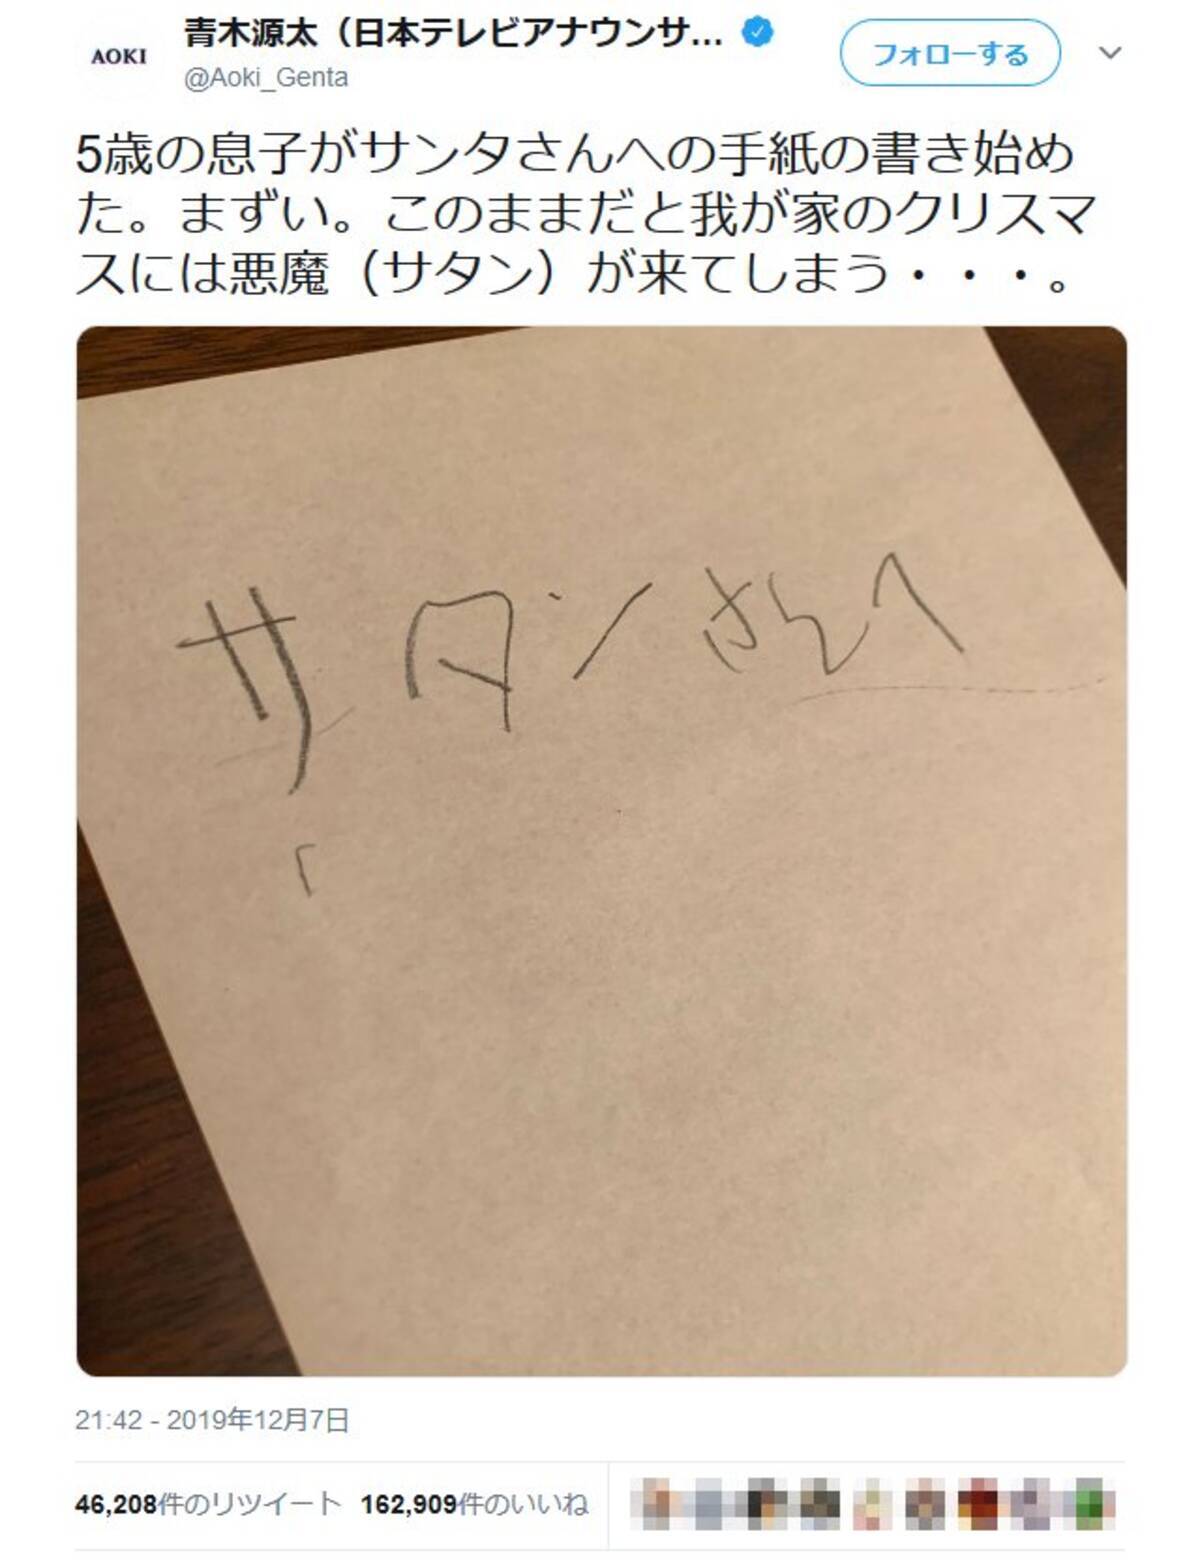 AOKI
青木源太（日本テレビアナウンサ...
フォローする
@Aoki_Genta
5歳の息子がサンタさんへの手紙の書き始め
た。まずい。このままだと我が家のクリスマ
スには悪魔（サタン）が来てしまう・・・。
サタンさんへ
21:42 - 2019年12月7日
46,208件のリツイート 162,909件のいいね